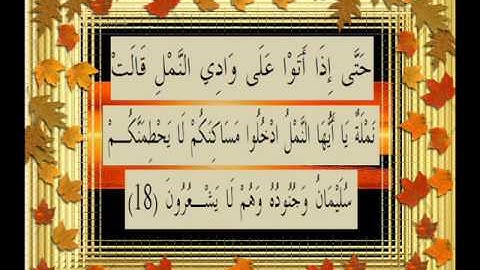 حَتَّى إِذَا أَتَوْا عَلَى وَادِي النَّمْلِ قَالَتْ
نَمْلَةٌ يَا أَيُّهَا النَّمْلُ ادْخُلُوا مَسَاكِنَكُمْ لَا يَحْطِمَنَّكُــمْ
سُلَيْمَانُ وَجُنُودُهُ وَهُمْ لَا يَشْــعُرُونَ (18)